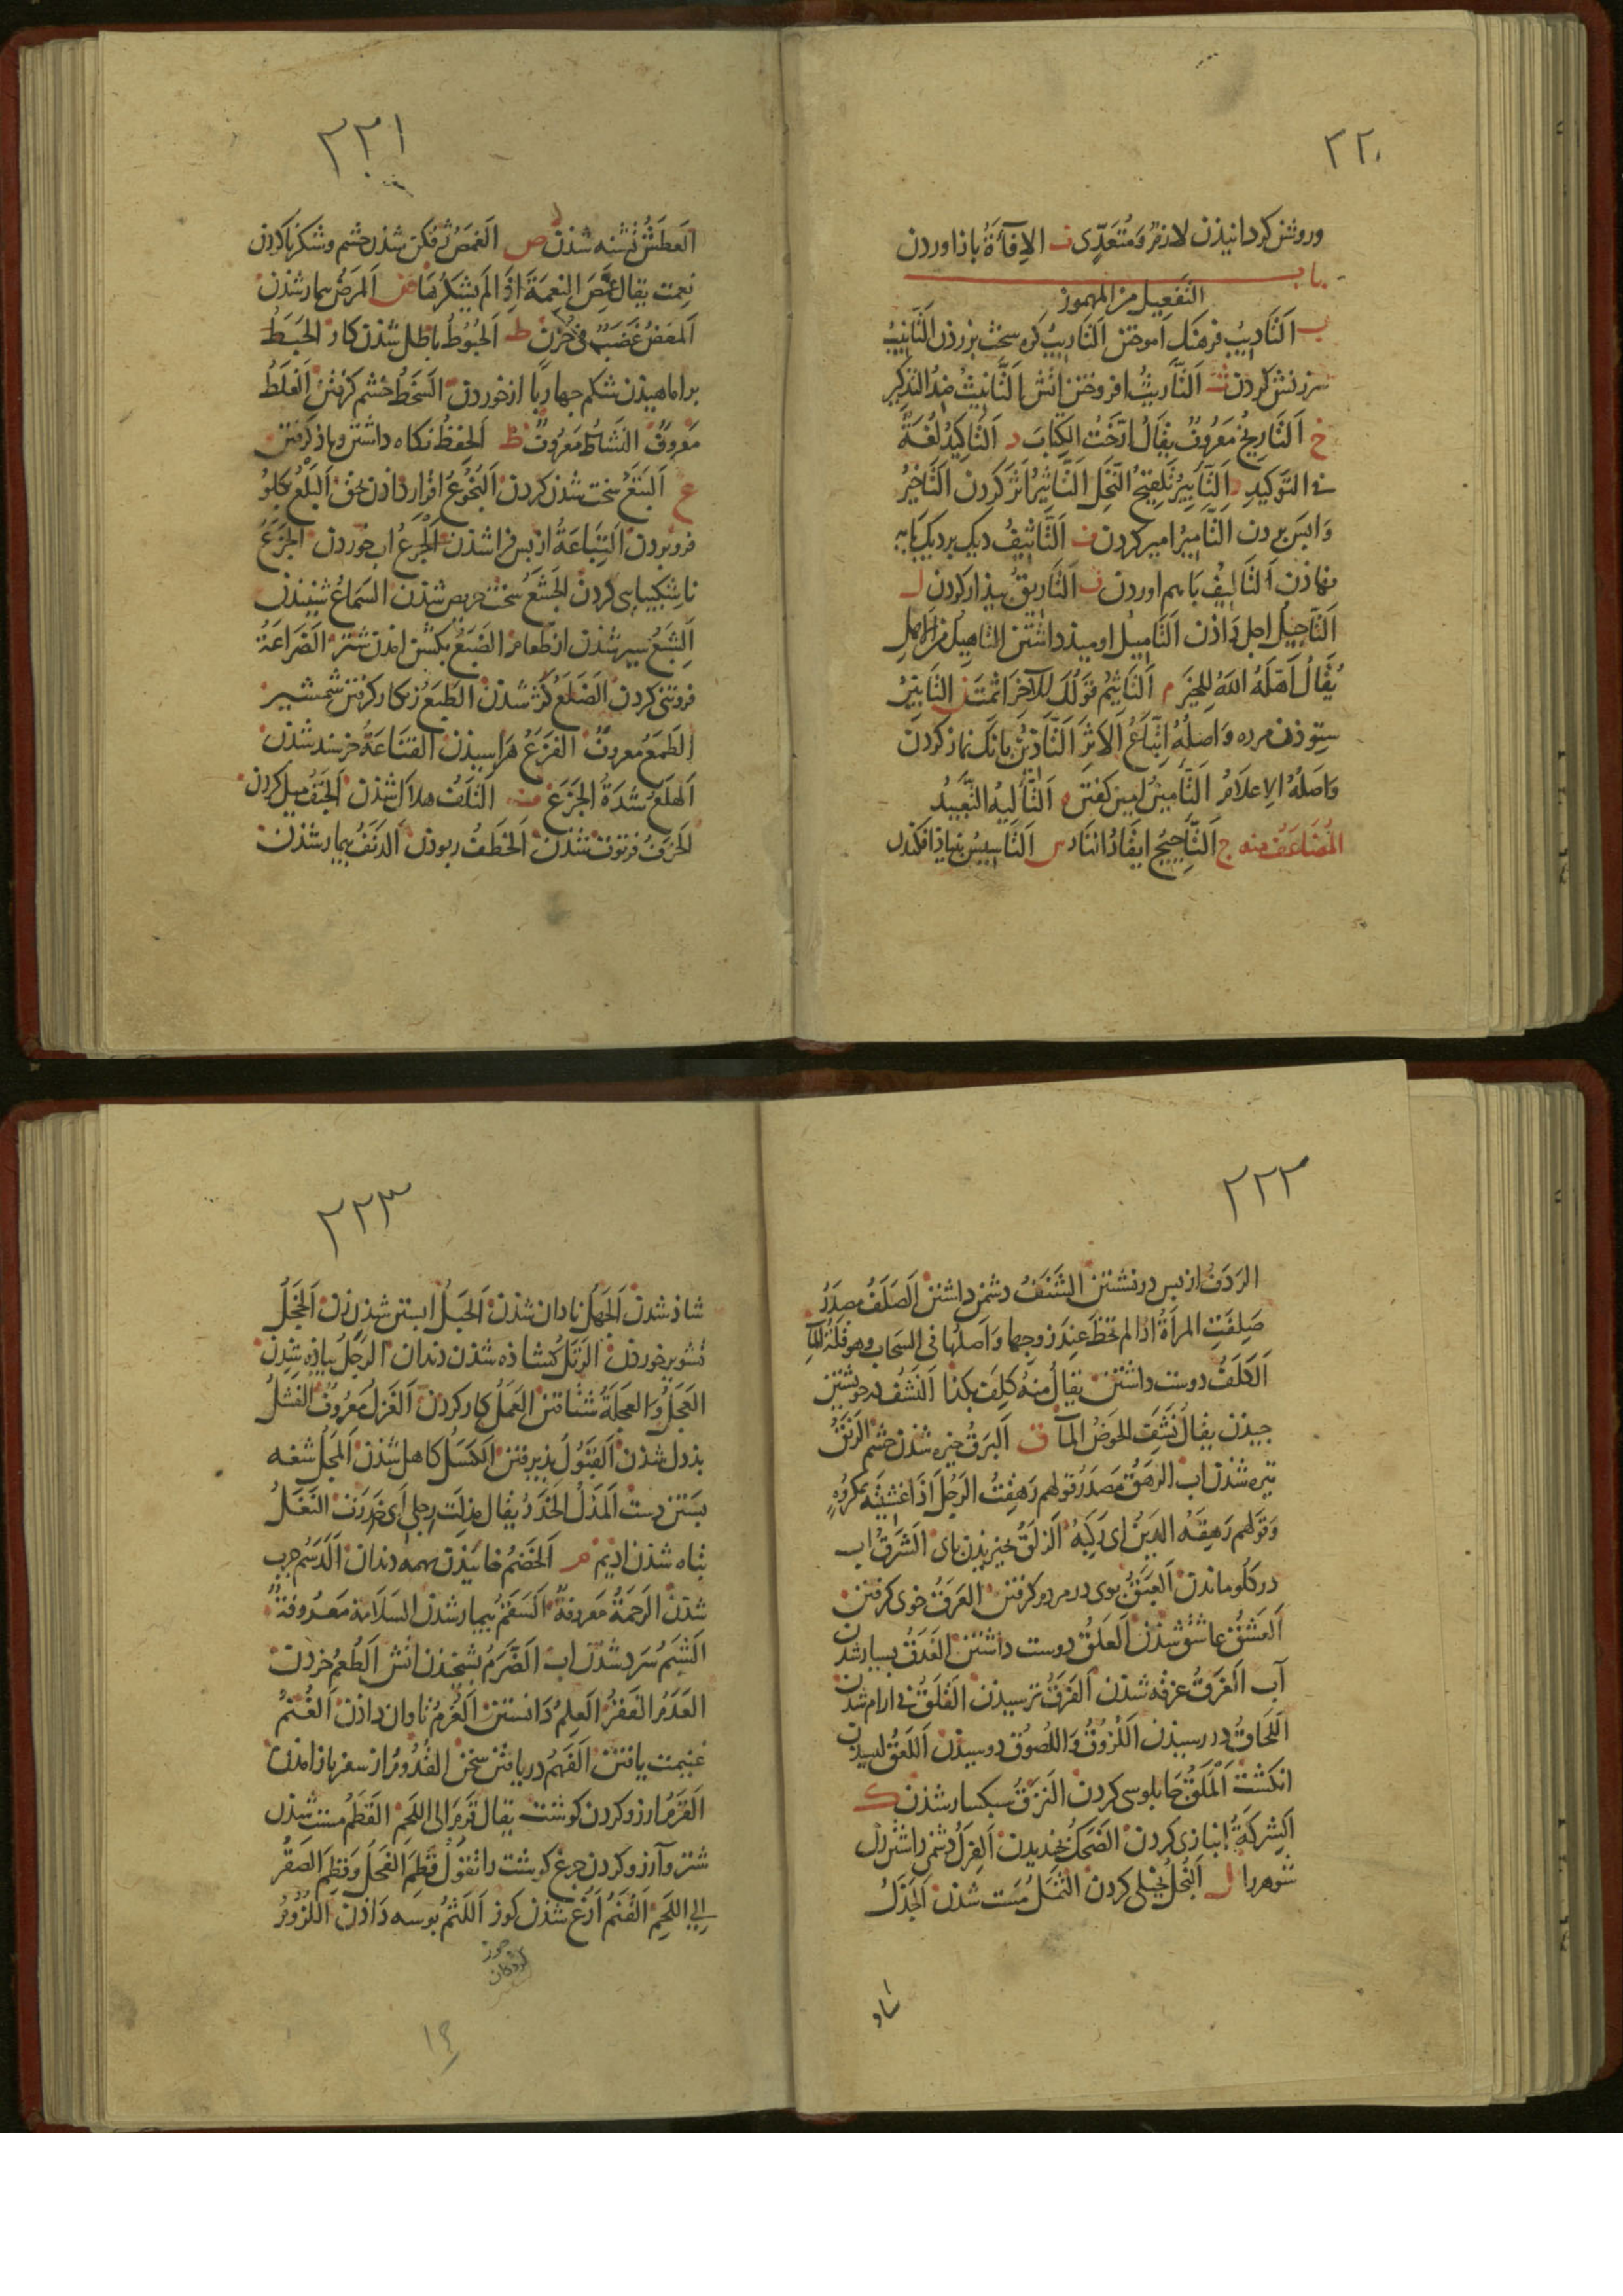 ٢٢٠
وروشن کردانیذن لازم ومتعدی ف الإفآءة باذ اوردن
باب
التفعیل من المهموز
ب التادیب فرهنك اموختن التاریب کره سخت بزرذن التانیب
سرزنش کردن ث التاریث افروختن اتش التانیث ضد التذکیر
خ التاریخ معروف یقال ارخت الکتاب د التاکید لغة
فی التوکید ر التابیر تلقیح النخل التاثیر اثر کردن التاخیر
واپس بردن التامیر امیر کردن ف التاثیف دیك بر دیك پایه
نهاذن التالیف باهم اوردن ق التاریق بیذار کردن ل
التاجیل اجل داذن التامیل اومیذ داشتن التاهیل من الاهل
یقال اهلك الله للخیر م التاثیم قولك للآخر اثمت ن التابین
ستوذن مرده واصله اتباع الاثر التاذین بانك نماز کردن
واصله الاعلام التامین امین کفتن ه التالیه التعبید
المضاعف منه ج التاجیج ایقاد النار س التاسیس بنیاذ افکندن
٢٢١
العطش تشنه شذن ص الغمص ژفکن شذن چشم وشکر ناکردن
نعمت یقال غمص النعمة اذا لم یشکرها ض المرض بیمار شذن
المعض غضب فی حزن ط الحبوط باطل شذن کار الحبط
براماهیذن شکم چهار پا از خوردن السخط خشم کرفتن الغلط
معروف النشاط معروف ظ الحفظ نکاه داشتن ویاذ کرفتن
ع البتع سخت شذن کردن البخوع اقرار داذن بحق البلع بکلو
فرو بردن التباعة از پس فرا شذن الجرع اب خوردن الجزع
ناشکیبایی کردن الجشع سخت حریص شذن السماع شنیذن
الشبع سیر شذن از طعام الضبع بکشن امدن شتر الضراعة
فروتنی کردن الضلع کژ شذن الطبع زنکار کرفتن شمشیر
الطمع معروف الفزع هراسیذن القناعة خرسند شذن
الهلع شدة الجزع ف التلف هلاك شذن الجنف میل کردن
الخرف فرتوت شذن الخطف ربوذن الدنف بیمار شذن
٢٢٢
الردف از پس در نشستن الشنف دشمن داشتن الصلف مصدر
صلفت المراة اذا لم تحظ عند زوجها واصلها فی السحاب وهو قلة الماء
الکلف دوست داشتن یقال منه کلف بکذا النشف در خویشتن
چیذن یقال نشف الحوض المآء ق البرق خیره شذن چشم الرنق
تیره شذن اب الرهق مصدر قولهم رهقت الرجل اذا غشیته بمکروه
وقولهم رهقه الدین ای رکبه الزلق بخیزیدن پای الشرق اب
در کلو ماندن العبق بوی در مردم کرفتن العرق خوی کرفتن
العشق عاشق شذن العلق دوست داشتن الغدق بسیار شدن
آب الغرق غرقه شدن الفرق ترسیذن القلق بی ارام شدن
اللحاق در رسیذن اللزوق واللصوق دوسیذن اللعق لیسیدن
انکشت الملق چابلوسی کردن النزق سبکسار شذن ك
الشرکة انبازی کردن الضحك خندیدن الفرك دشمن داشتن زن
شوهر را ل البخل بخیلی کردن الثمل مست شذن الجذل
شاد
٢٢٣
شاذ شدن الجهل نادان شذن الحبل ابستن شذن زن الخجل
تشویر خوردن الرتل کشاذه شدن دندان الرجل پیاذه شدن
العجل والعجلة شتافتن العمل کار کردن الغزل معروف الفشل
بذدل شذن القبول پذیرفتن الکسل کاهل شذن المجل شغه
بستن دست المذل الخدر یقال مذلت رجلی ای خدرت النغل
تباه شذن ادیم م الخضم خاییذن بهمه دندان الدسم چرب
شدن الرحمة معروفة السقم بیمار شدن السلامة معروفة
الشبم سرد شدن اب الضرم بشخیذن اتش الطعم خردن
العدم الفقر العلم دانستن الغرم تاوان داذن الغنم
غنیمت یافتن الفهم دریافتن سخن القدوم از سفر باز امدن
القرم ارزو کردن کوشت یقال قرم الی اللحم القطم مست شدن
شتر وآرزو کردن چرغ کوشت را تقول قطم الفحل وقطم الصقر
الی اللحم القنم ارغ شذن کوز اللثم بوسه داذن اللزوم
جوز
کردکان